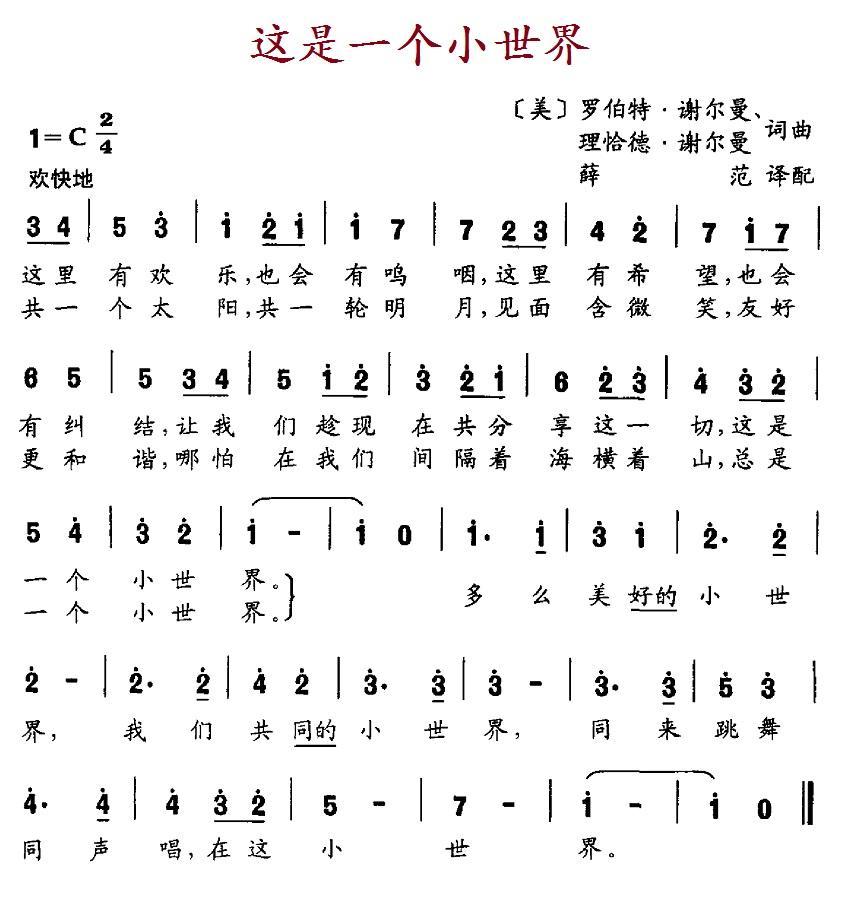 这是一个小世界
〔美〕罗伯特·谢尔曼、
理恰德·谢尔曼 词曲
薛 范 译配
1=C 2/4
欢快地
3 4 | 5 3̇ | 1̇ 2̇ 1̇ | 1̇ 7 | 7 2 3 | 4 2̇ | 7 1̇ 7 |
这里 有欢 乐,也会 有呜 咽,这里 有希 望,也会
共一 个太 阳,共一 轮明 月,见面 含微 笑,友好
6 5 | 5 3 4 | 5 1̇ 2̇ | 3̇ 2̇ 1̇ | 6 2̇ 3̇ | 4̇ 3̇ 2̇ |
有纠 结,让我 们趁现 在共分 享这一 切,这是
更和 谐,哪怕 在我们 间隔着 海横着 山,总是
5 4̇ | 3̇ 2̇ | 1̇ - | 1̇ 0 | 1̇· 1̇ | 3̇ 1̇ | 2̇· 2̇ |
一个 小世 界。 多 么 美 好的 小 世
一个 小世 界。
2̇ - | 2̇· 2̇ | 4̇ 2̇ | 3̇· 3̇ | 3̇ - | 3̇· 3̇ | 5̇ 3̇ |
界, 我 们 共 同的 小 世 界, 同 来 跳 舞
4̇· 4̇ | 4̇ 3̇ 2̇ | 5 - | 7 - | 1̇ - | 1̇ 0 ‖
同 声 唱,在这 小 世 界。